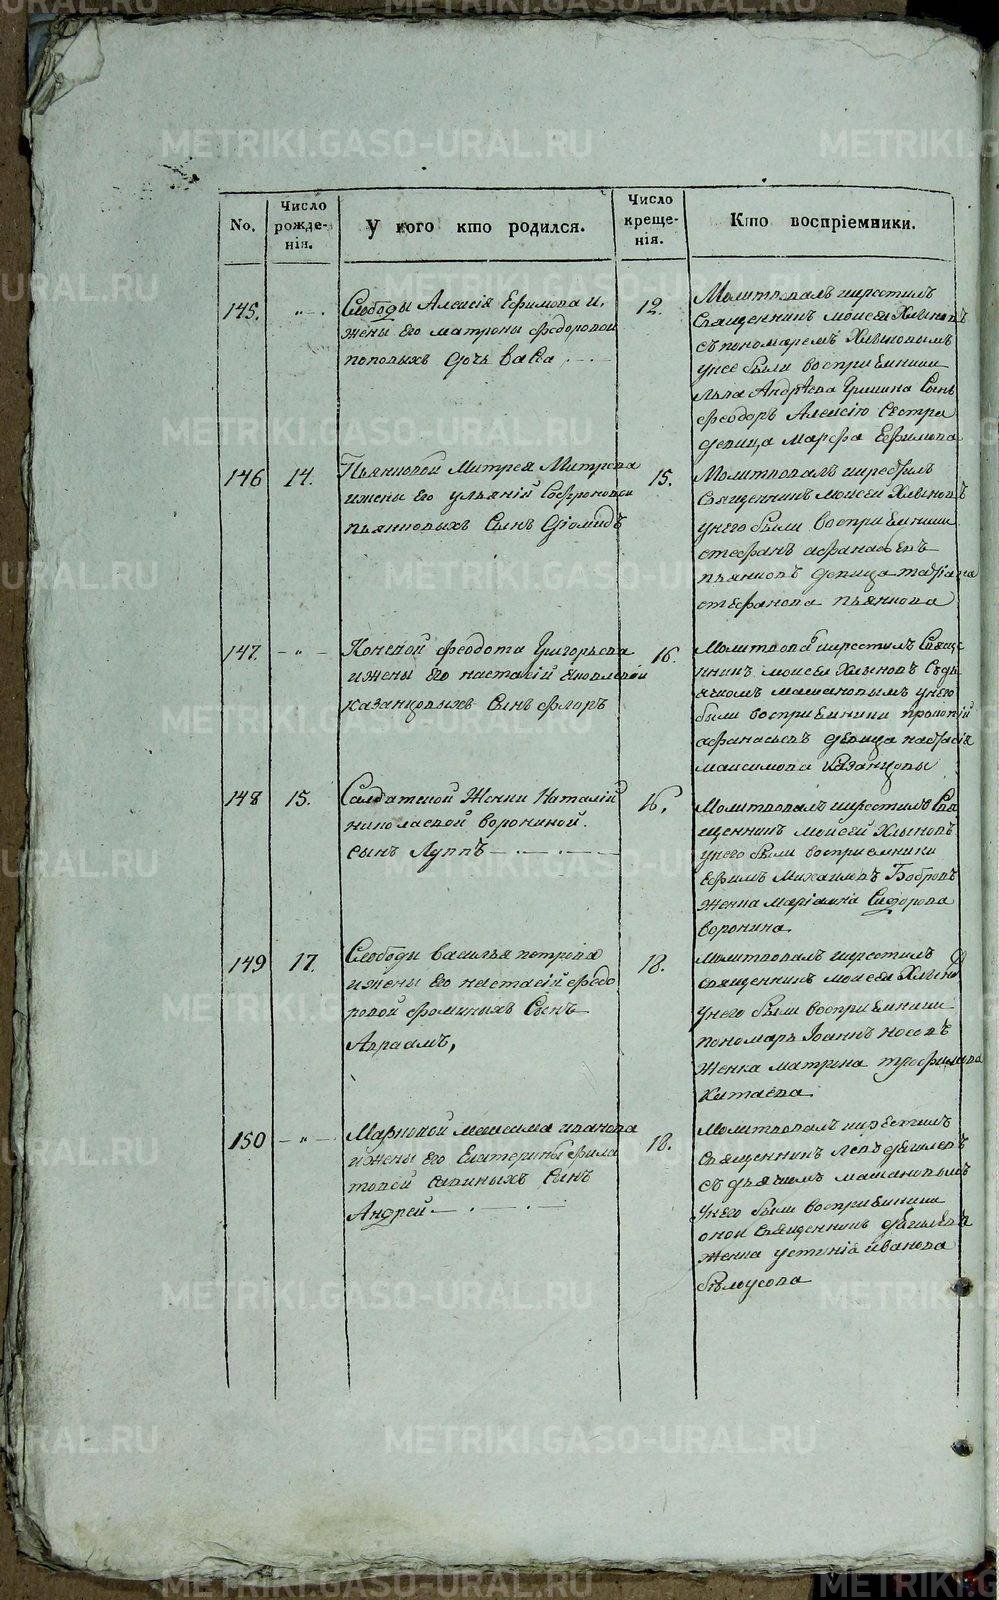 No.
Число рожде-нія.
У кого кто родился.
Число креще-нія.
Кто воспріемники.
145.
„
Слободы Алексія Ефимова и
жены его матроны федоровой
поповыхъ дочь васа
12.
Молитвовалъ икрестилъ
Священникъ моисей Хлыновъ
съ пономаремъ Хлыновымъ
унее были восприемники
льва Андрѣева Гришина Сынъ
феодоръ Алексію Сестра
девица марфа Ефимова
146
14.
Пьянковой Митрея Митрева
ижены его ульяній Софроновой
пьянковыхъ Сынъ Діомидъ
15.
Молитвовалъ икрестилъ
Священникъ моисей Хлыновъ
унего были восприемники
стефанъ афанасьевъ
пьянковъ девица татіана
стефанова пьянкова
147.
„
Конской феодота Григорьева
ижены его настасій яковлевой
казанцовыхъ Сынъ флоръ
16.
Молитвовал икрестилъ Свяще
нникъ моисей Хлыновъ Съдь
ячкомъ машановымъ унего
были восприемники прокопій
афанасьевъ девица настасія
максимова казанцовы
148
15.
Салдатской Женки Наталій
николаевой ворониной.
сынъ Луппъ
16.
Молитвовалъ икрестилъ Свя
щенникъ моисей Хлыновъ
унего были восприемники
ефимъ михаиловъ Бобровъ
женка маріамна Сидорова
воронина
149
17.
Слободы василья петрова
ижены его настасій федо
ровой фоминыхъ Сынъ
Авраамъ,
18.
Молитвовалъ икрестилъ
священникъ моисей Хлынов
унего были восприемники
пономарь Іоаннъ носовъ
женка матрена трофимова
Китаева.
150
„
Марковой максима иванова
ижены его Екатерины фила
товой савиныхъ Сынъ
Андрей
18.
Молитвовалъ икрестилъ
Священникъ левъ
съ дьячкомъ машановымъ
унего были восприемники
оной Священникъ
женка устинія иванова
бѣлоусова
METRIKI.GASO-URAL.RU